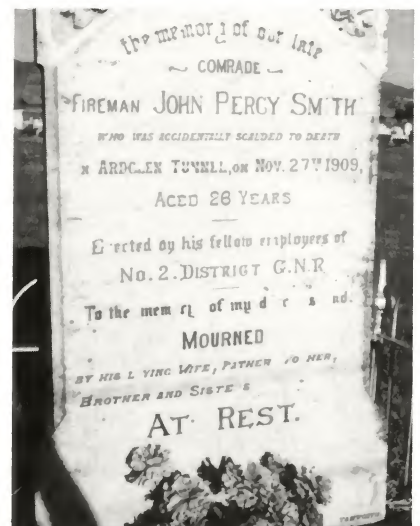 the memory of our late
COMRADE
FIREMAN JOHN PERCY SMITH
WHO WAS ACCIDENTALLY SCALDED TO DEATH
ARDGLEN TUNNEL, ON NOV. 27TH 1909,
AGED 26 YEARS
Erected by his fellow employees of
No. 2. DISTRICT G.N.R
To the mem of my
MOURNED
BY HIS WIFE, FATHER
BROTHER AND SISTE S
AT REST.
TAMWORTH